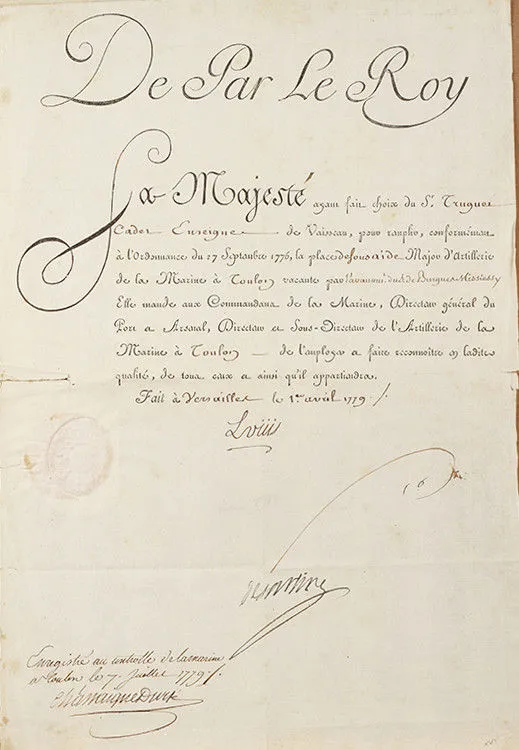 De Par Le Roy
Sa Majesté ayant fait choix du Sr. Truguet
Cadet Enseigne de Vaisseau, pour remplir, conformément
à l'Ordonnance du 27 Septembre 1776, la place de sous aide Major d'Artillerie
de la Marine à Toulon vacante par l'avancemt. du S. de Burgues Missiessy
Elle mande aux Commandant de la Marine, Directeur général du
Port et Arsenal, Directeur et Sous-Directeur de l'Artillerie de la
Marine à Toulon de l'employer et faire reconnoître en ladite
qualité, de tous ceux et ainsi qu'il appartiendra.
Fait à Versailles le 1er. avril 1779 ./.
Louis
de Sartine
Enregistré au controlle de la marine
a toulon le 7. Juillet 1779 ./.